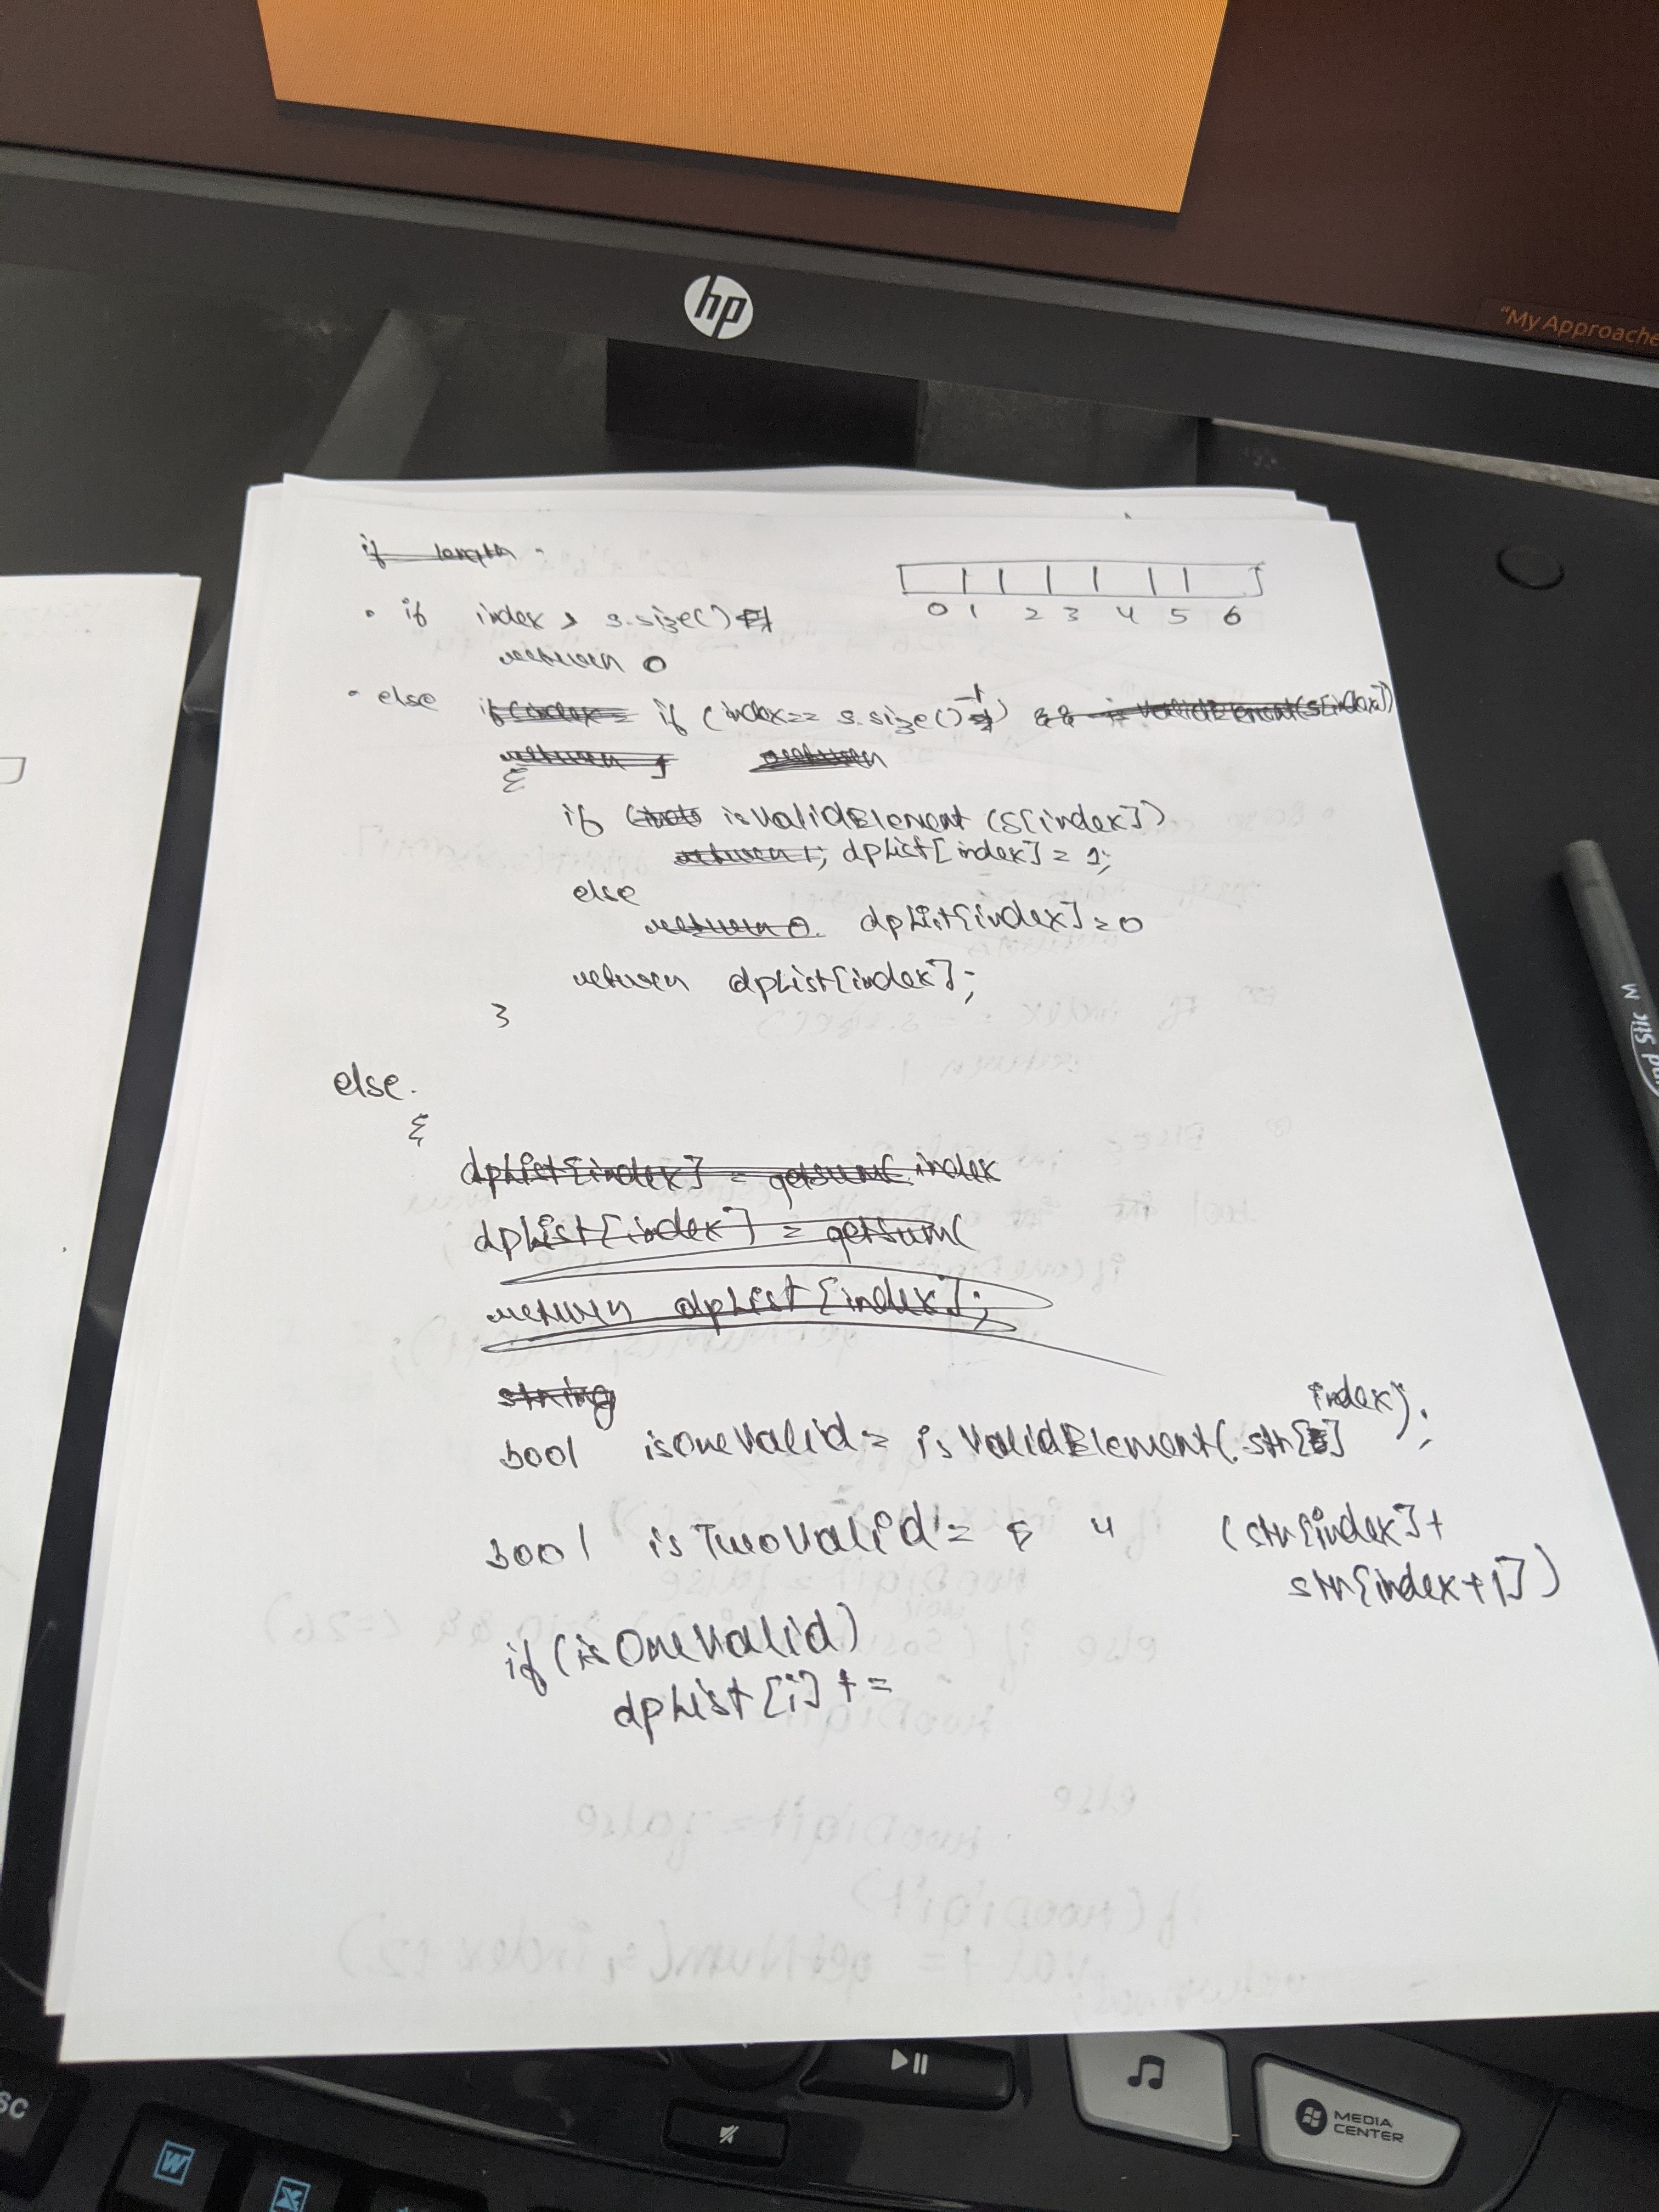 "My Approache
hp
if length
0 1 2 3 4 5 6
• if index > s.size()
return 0
• else if (index = if (index == s.size() -1) && is ValidElement(s[index])
return 1 return
{
if (not isValidElement (s[index])
return 1; dpList[index] = 1;
else
return 0. dpList[index] = 0
return dpList[index];
}
else.
{
dpList[index] = getsum( index
dpList[index] = getsum(
return dpList[index];
string
bool isOneValid = isValidElement(str[ index]);
bool isTwoValid = " (str[index]+
str[index+1])
if (isOneValid)
dpList[i] +=
nd Stic M
sc
W
X
MEDIA
CENTER